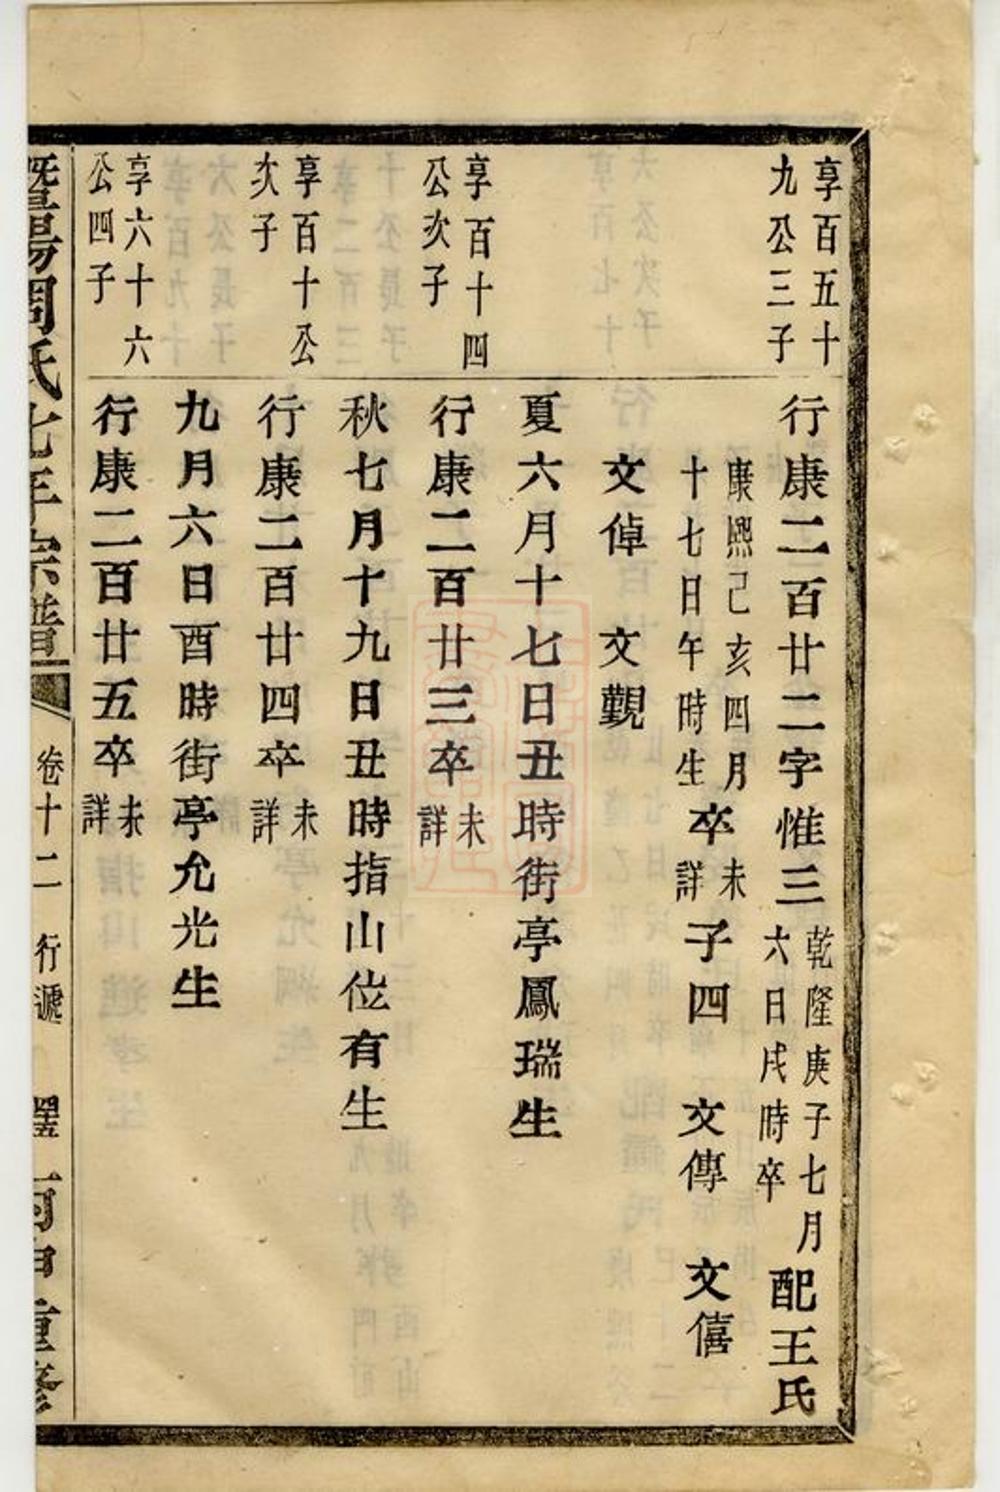 享百五十
九公三子
行康二百廿二字惟三
乾隆庚子七月
六日戌時卒
配王氏
康熙己亥四月
十七日午時生
卒
未
詳
子四　文傳　文僖
文倬　文觀
夏六月十七日丑時街亭鳳瑞生
享百十四
公次子
行康二百廿三卒
未
詳
秋七月十九日丑時指山位有生
享百十公
次子
行康二百廿四卒
未
詳
九月六日酉時街亭允光生
享六十六
公四子
行康二百廿五卒
未
詳
暨陽周氏七年宗譜
卷十二　行遞